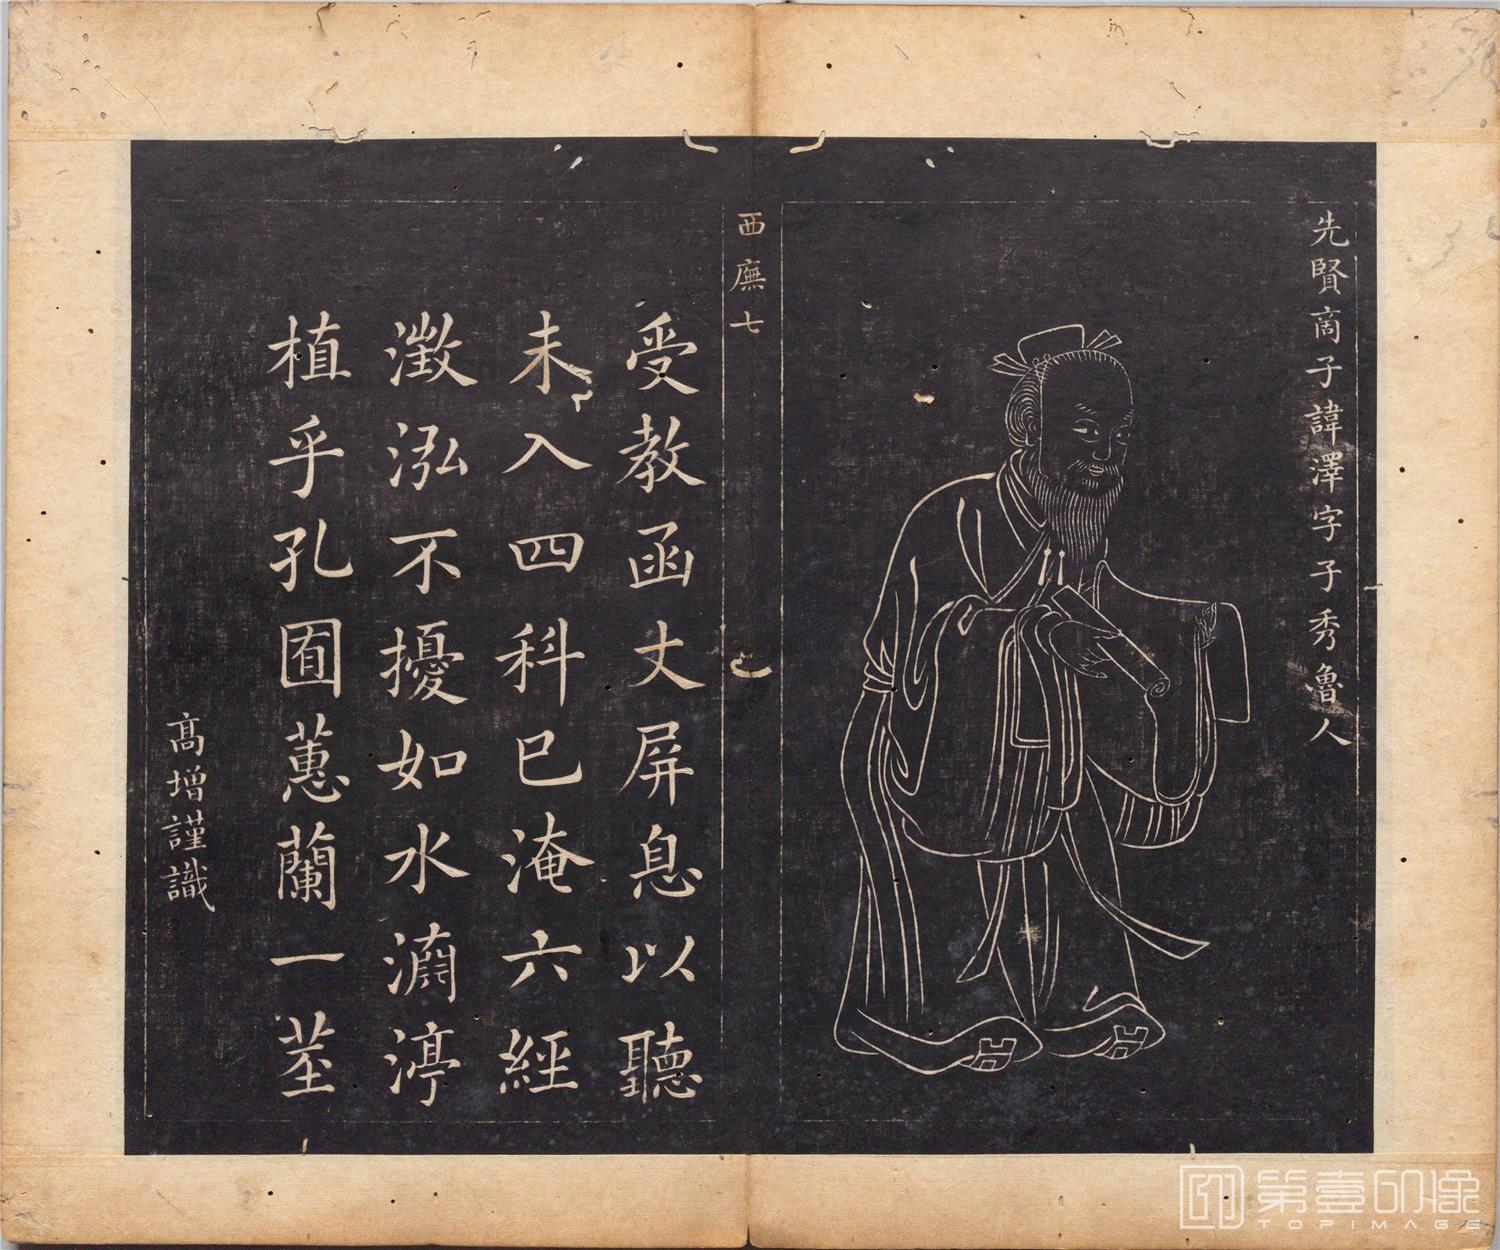 先賢商子諱澤字子秀魯人
西廡七
受教函丈屏息以聽
未入四科已淹六經
澂泓不擾如水淵渟
植乎孔囿蕙蘭一莖
高增謹識
第壹印像
TOPIMAGE